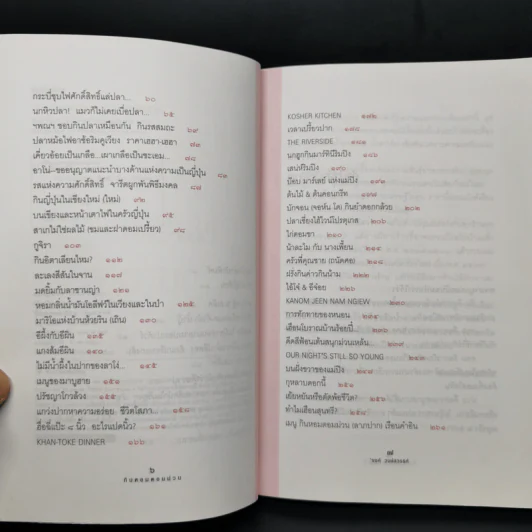 กระบี่ชุบไฟศักดิ์สิทธิ์แด่ปลา... ๖๐
นกหิวปลา! แมวก็ไม่เคยเบื่อปลา... ๖๕
ฯพณฯ ชอบกินปลาเหมือนกัน กินรสสมถะ ๖๙
ปลาหม้อไฟอาช้อริมคูเวียง ราคาเฮฮา-เฮฮา ๗๓
เคี่ยวอ้อยเป็นเกลือ...เผาเกลือเป็นชะเอม... ๗๘
อาโน-ขออนุญาตแนะนำบางด้านแห่งความเป็นญี่ปุ่น ๘๓
รสแห่งความศักดิ์สิทธิ์ จารีตผูกพันพิธีมงคล ๘๗
กินญี่ปุ่นในเชียงใหม่ (ใหม่) ๙๒
บนเขียงและหน้าเตาไฟในครัวญี่ปุ่น ๙๕
สาเกไม่ใช่ผลไม้ (ขมและฝาดอมเปรี้ยว) ๙๘
กูจิรา ๑๐๓
กินอิตาเลียนไหม? ๑๑๒
ละเลงสีสันในจาน ๑๑๗
มดยิ้มกับลาซานญ่า ๑๒๑
หอมกลิ่นน้ำมันโอลีฟวีในเวียงและในป่า ๑๒๕
มาริโอแห่งบ้านห้วยริน (เถิน) ๑๓๐
อีผึ้งกับอีผิน ๑๓๕
แกงส้มอีผิน ๑๔๐
ไม่มีน้ำผึ้งในปากของลาโง่... ๑๔๕
เมนูของมาบูฮาย ๑๕๑
ปรัชญาโกวล้วง ๑๕๔
แกว่งปากหาความอร่อย ชีวิตโสภา... ๑๕๘
ฮื่อฉี่แป๊ะ ๘ นิ้ว อะไรแปดนิ้ว? ๑๖๑
KHAN-TOKE DINNER ๑๖๖
๖
กินหอมตอมม่วน
KOSHER KITCHEN ๑๗๒
เวลาเปรี้ยวปาก ๑๗๘
THE RIVERSIDE ๑๘๑
นกฮูกกินมาร์ทินี่ริมปิง ๑๘๖
เสน่หริมปิง ๑๙๑
บ๊อบ มาร์เลย์ แห่งแม่ปิง ๑๙๔
ต้นไม้ & ต้นคอนกรีต ๑๙๘
บักจอน (จอห์น โค) กินยำดอกกล้วย ๒๐๒
ปลาเซี่ยงไฮ้ไวน์โปรตุเกส ๒๐๖
ไก่ดอมชา ๒๑๐
น้าละไม กับ นางเพี้ยน ๒๑๔
ครัวพี่คุณชาย (ถนัดศอ) ๒๑๘
ฝรั่งกินค่าวกินน้าม ๒๒๒
ไอ้โจ้ & อีจ้อย ๒๒๖
KANOM JEEN NAM NGIEW ๒๓๐
การทักทายของหนอน ๒๓๔
เฮือนโบราณบ้านร้อยปี...
ดีดสีฟ้อนเต้นสนุกม่วนเหล้น...
OUR NIGHT'S STILL SO YOUNG
บนฝั่งขวาของแม่ปิง ๒๔๗
กุหลาบดอกนี้ ๒๕๑
เฮียหยันหรือดัดพ้อชีวิต?
ทำไมเฮือนสุนทรี? ๒๕๘
เมนู กินหอมตอมม่วน (ลาภปาก) เรือนคำอิน ๒๖๑